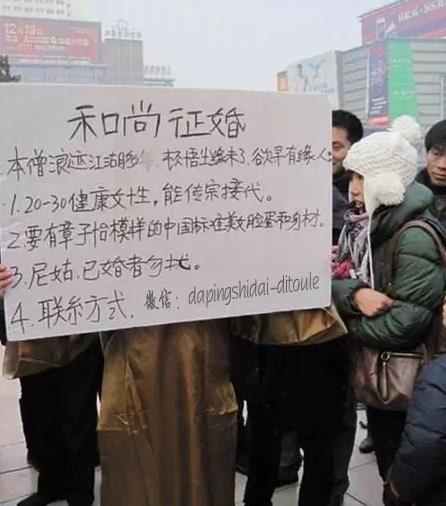 12月13日
和尚征婚
本僧浪迹江湖多年,本悟尘缘未了,欲寻有缘人。
1.20-30健康女性,能传宗接代。
2.要有章子怡模样的中国标准美女脸蛋和身材。
3.尼姑、已婚者勿扰。
4.联系方式. 微信:dapingshidai-ditoule